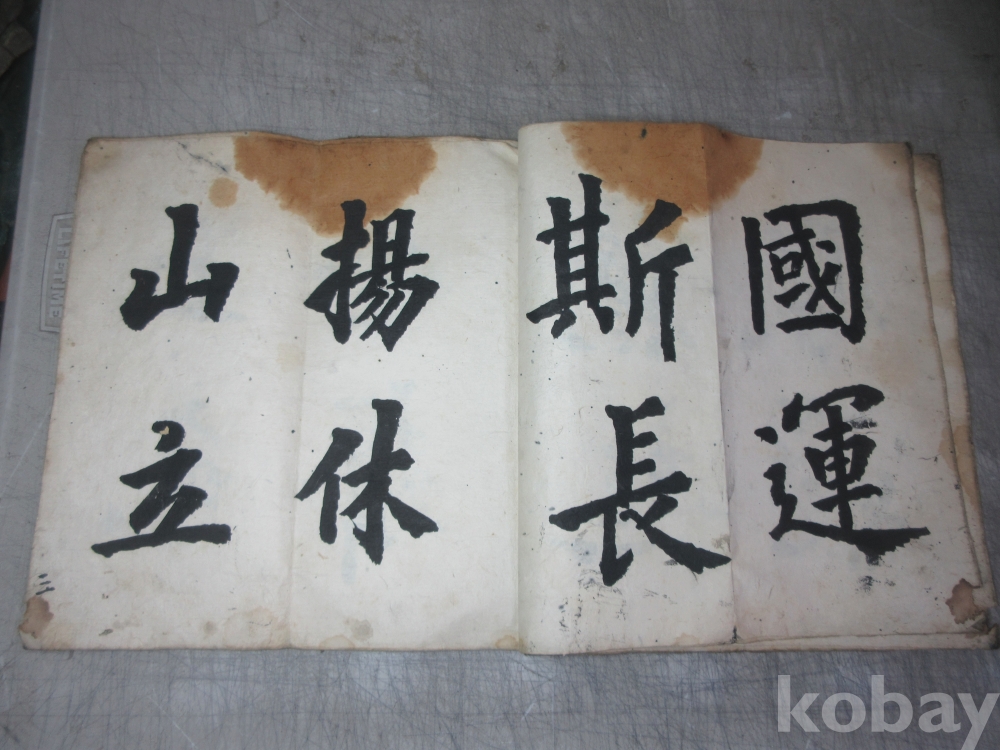 國運
斯長
揚休
山立
二
LIFETIME
kobay